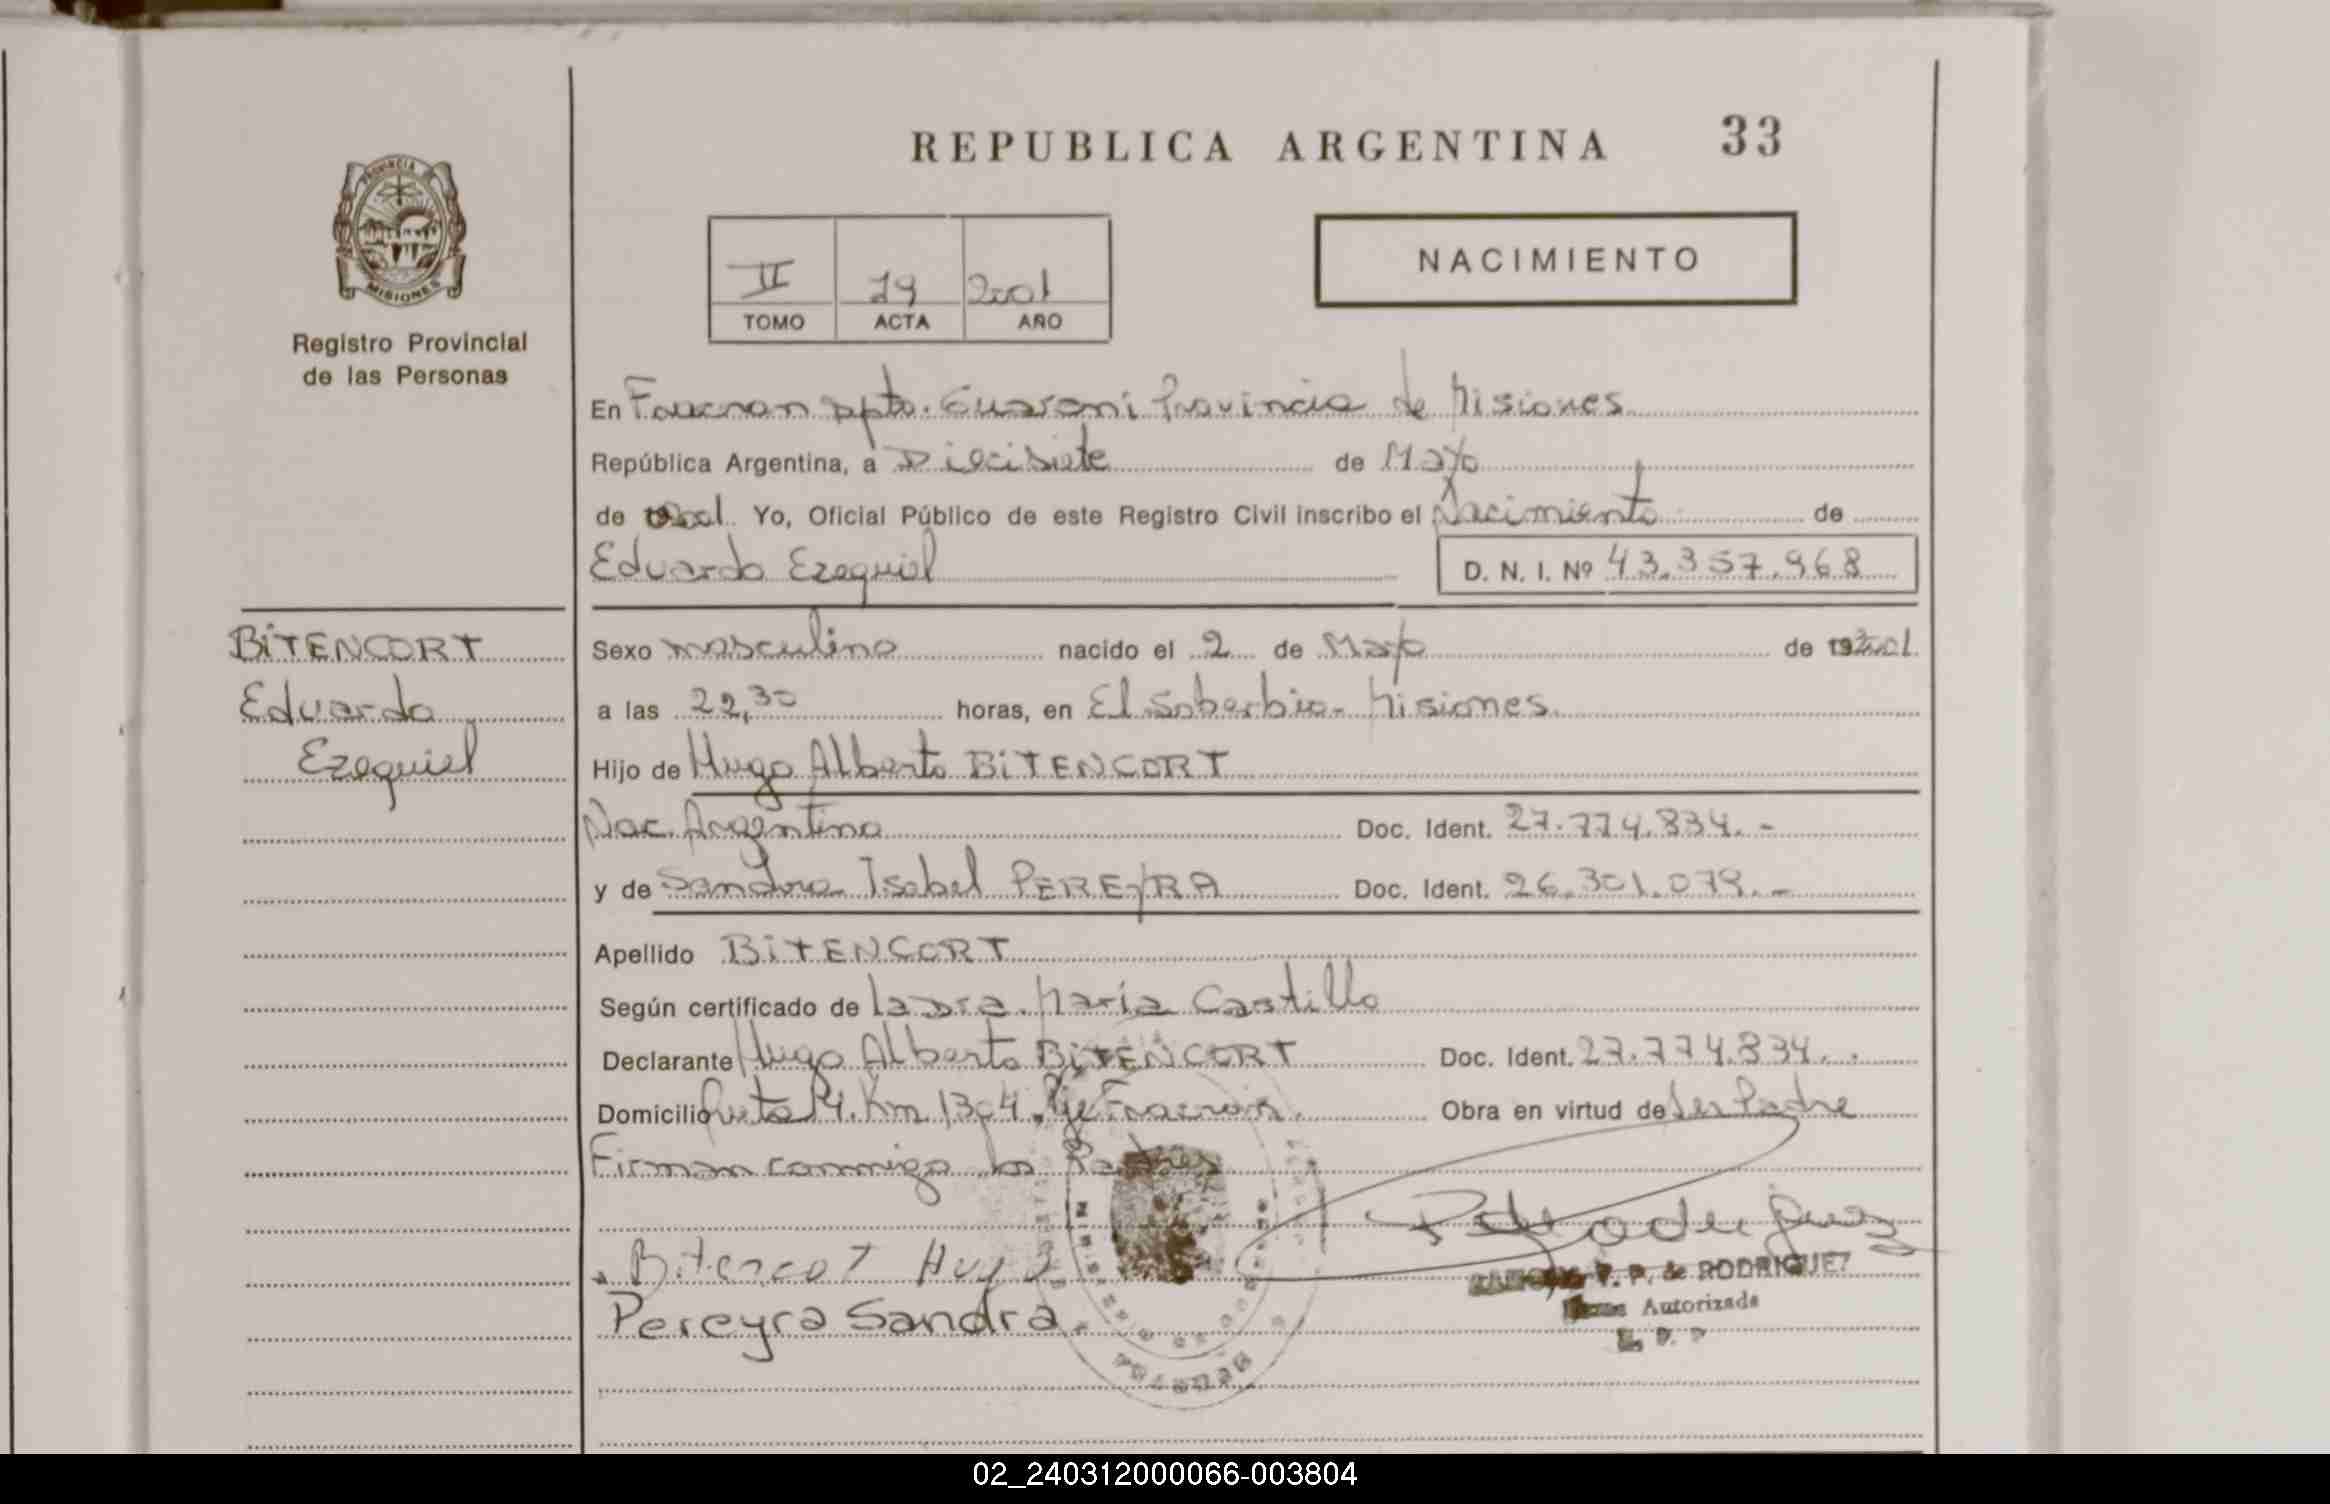 REPUBLICA ARGENTINA 33
PROVINCIA DE
MISIONES
Registro Provincial
de las Personas
NACIMIENTO
II 79 2001
TOMO ACTA AÑO
En Fracran Dpto. Guarani Provincia de Misiones
República Argentina, a Diecisiete de Mayo
de 2001 Yo, Oficial Público de este Registro Civil inscribo el Nacimiento de
Eduardo Ezequiel D. N. I. Nº 43.357.968
BITENCORT
Eduardo
Ezequiel
Sexo masculino nacido el 2 de Mayo de 2001
a las 22,30 horas, en El Soberbio - Misiones
Hijo de Hugo Alberto BITENCORT
Nac. Argentina Doc. Ident. 27.774.834.-
y de Sandra Isabel PEREYRA Doc. Ident. 26.301.079.-
Apellido BITENCORT
Según certificado de la Dra. Maria Castillo
Declarante Hugo Alberto BITENCORT Doc. Ident. 27.774.834.
Domicilio Ruta 14. Km 1304. Pje Fracran. Obra en virtud de Ser Padre
Firman conmigo los Padres
Bitencort Hugo
Pereyra Sandra
P. de Rodriguez
P. P. de RODRIGUEZ
Autorizada
02_240312000066-003804